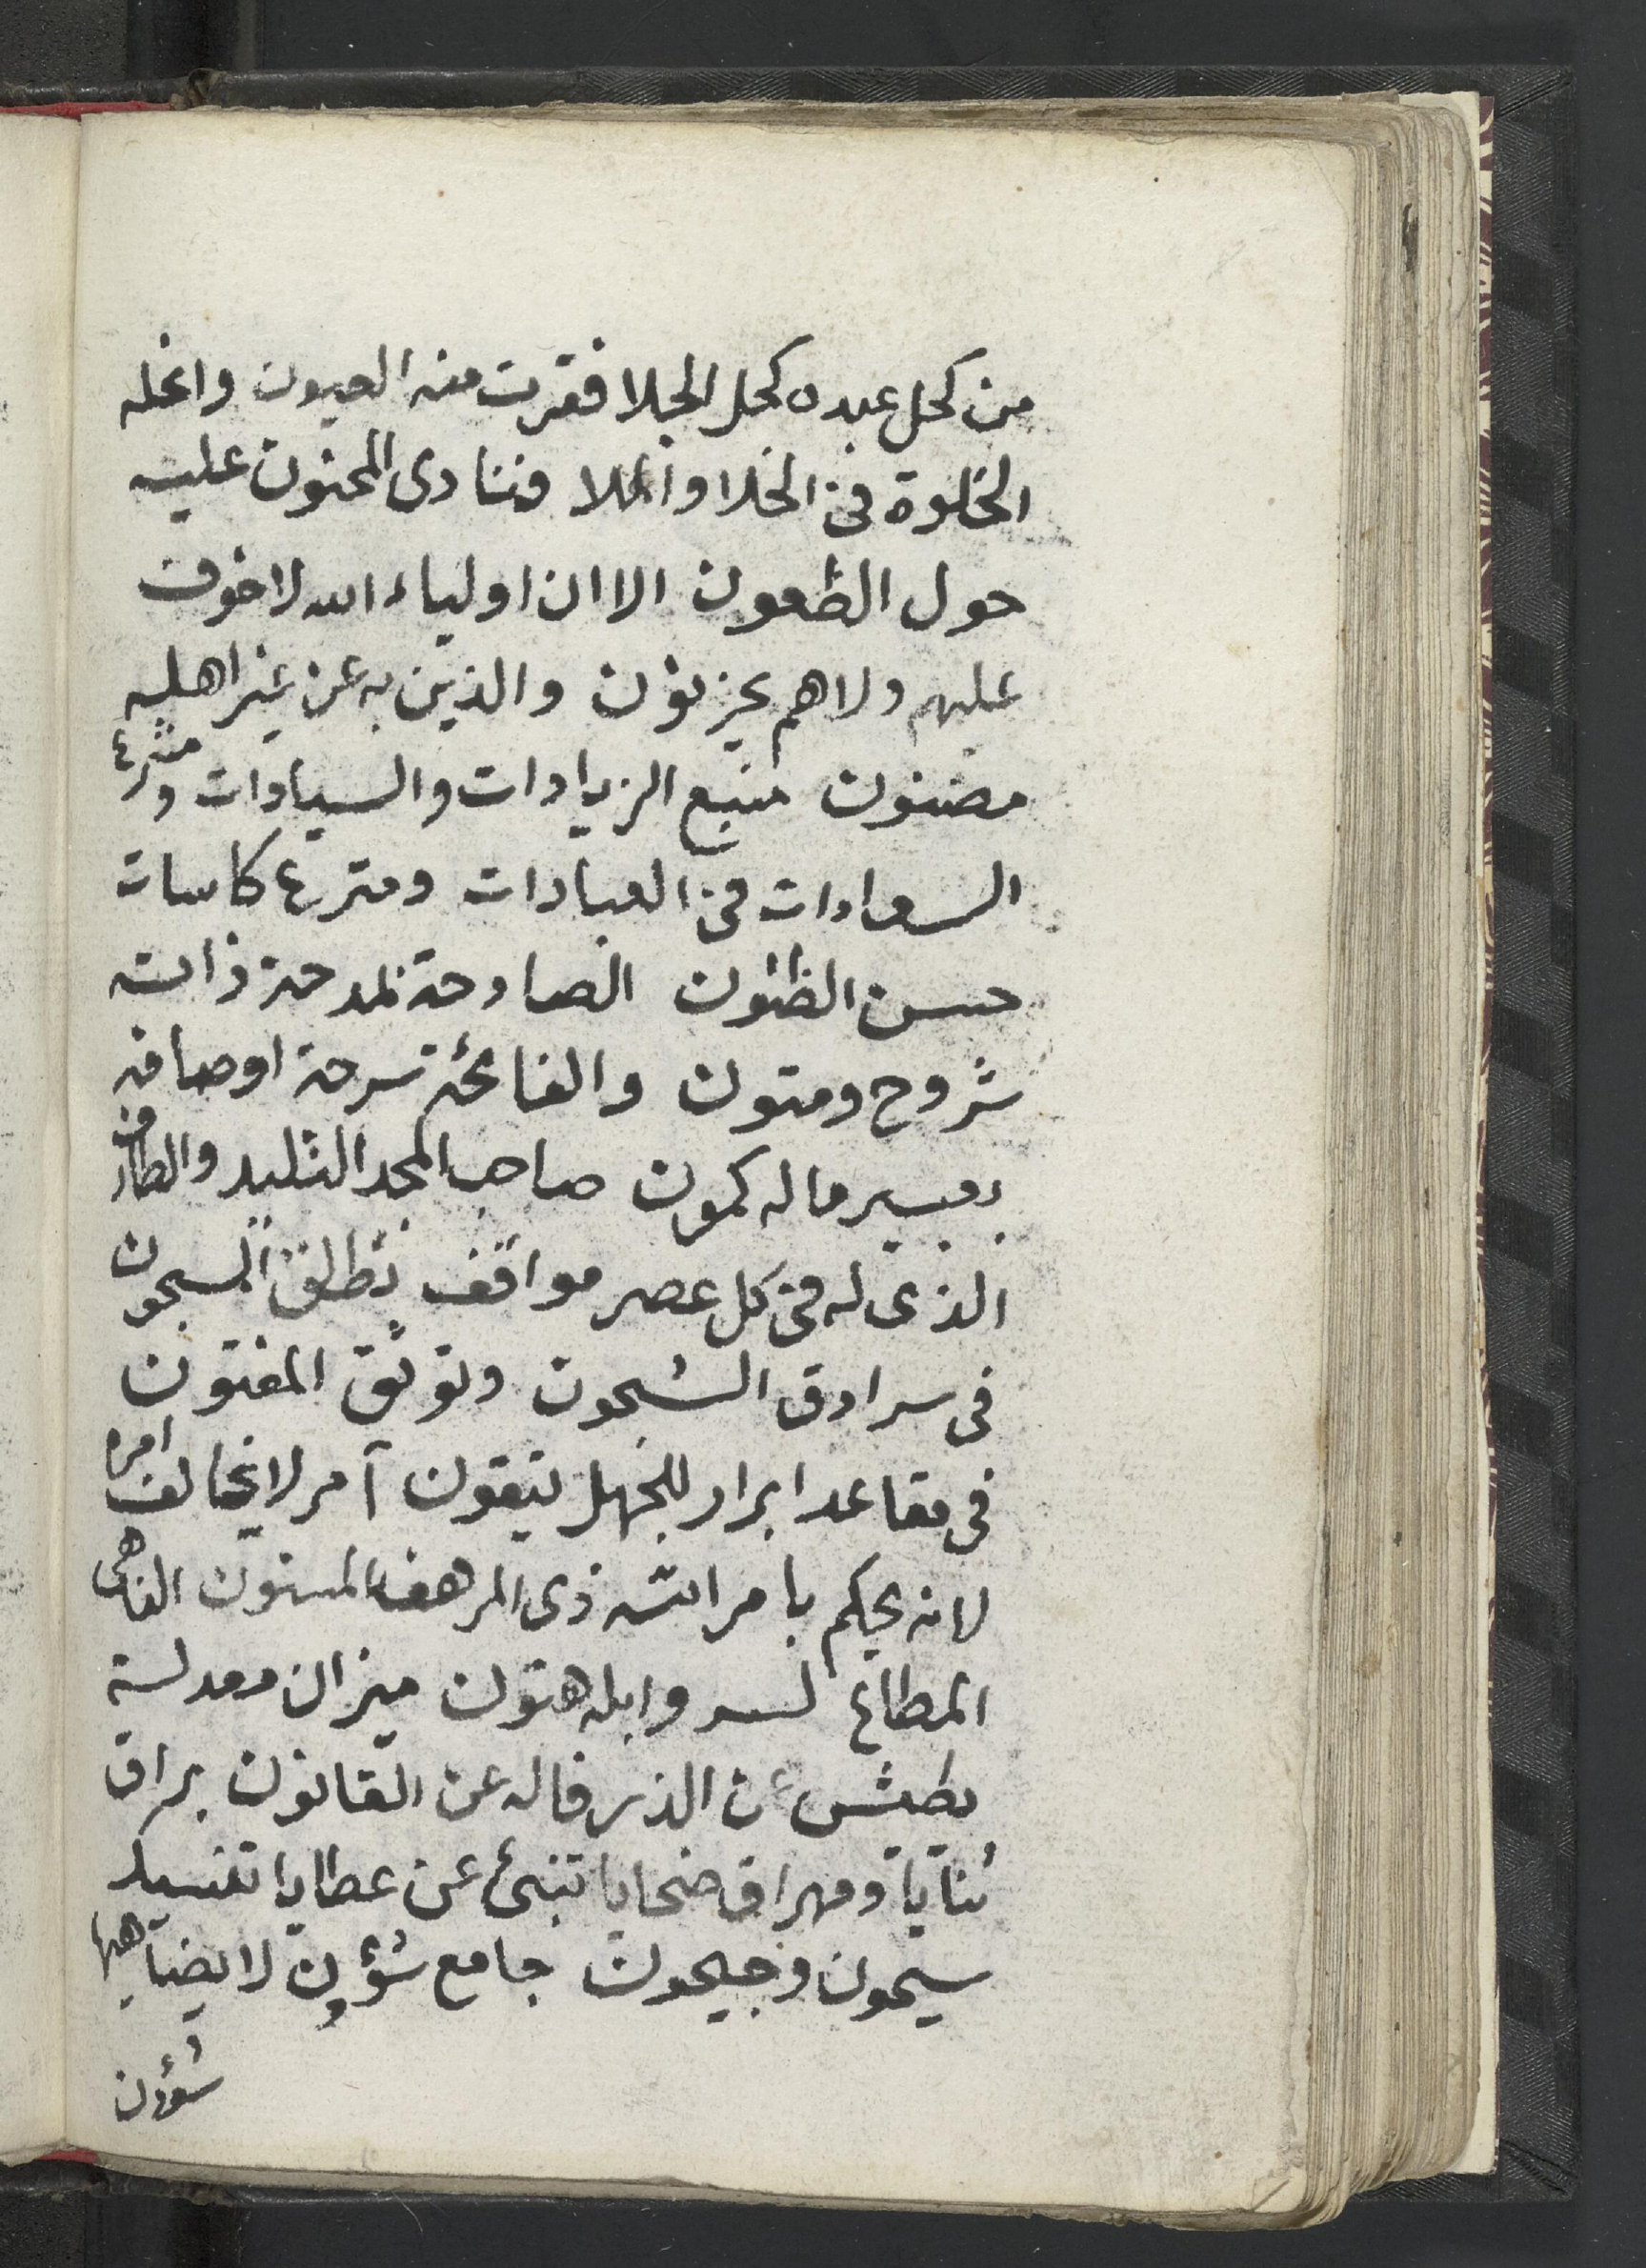 من كحل عبده كحل الجلا فقرت منه العيون وانحله
الخلوة فى الخلا والملا فنادى المحنون عليه
حول الظعون الا ان اولياء الله لا خوف
عليهم ولا هم يحزنون والذين به عن غير اهليه
مضنون منبع الزيادات والسيادات ومترع
السعادات فى العبادات ومترع كاسات
حسن الظنون الصادحة بمدحة ذاته
شروح ومتون والفائحة سرحة اوصافه
بعبير ماله كمون صاحب المجد التليد والطارف
الذى له فى كل عصر مواقف تطلق المسجون
فى سرادق الشجون وتوثق المفتون
فى مقاعد ابرار للجهل يتقون آمر لا يخالف امره
لانه يحكم بامر الله ذى المرهف المسنون الناهى
المطاع وابله هتون ميزان معدلة
الذر قاله عن القانون براق
ثنايا ومهراق ضحايا تنبئ عن عطايا تفسيد
سيحون وجيحون جامع شؤون لا يضاهيها
شؤن